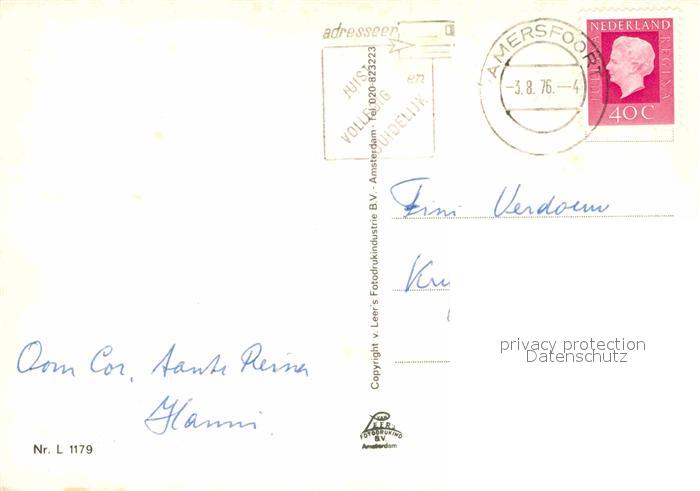 adresseer
JUIST
VOLLEDIG
en
DUIDELIJK
AMERSFOORT
-3.8.76.-4
NEDERLAND
JULIANA REGINA
40C
Copyright v. Leer's Fotodrukindustrie B.V. - Amsterdam - Tel 020-823223
Fini Verdoem
Kru
privacy protection
Datenschutz
Oom Cor, tante Reina
Hanni.
VAN
LEER'S
FOTODRUKIND
B.V.
Amsterdam
Nr. L 1179